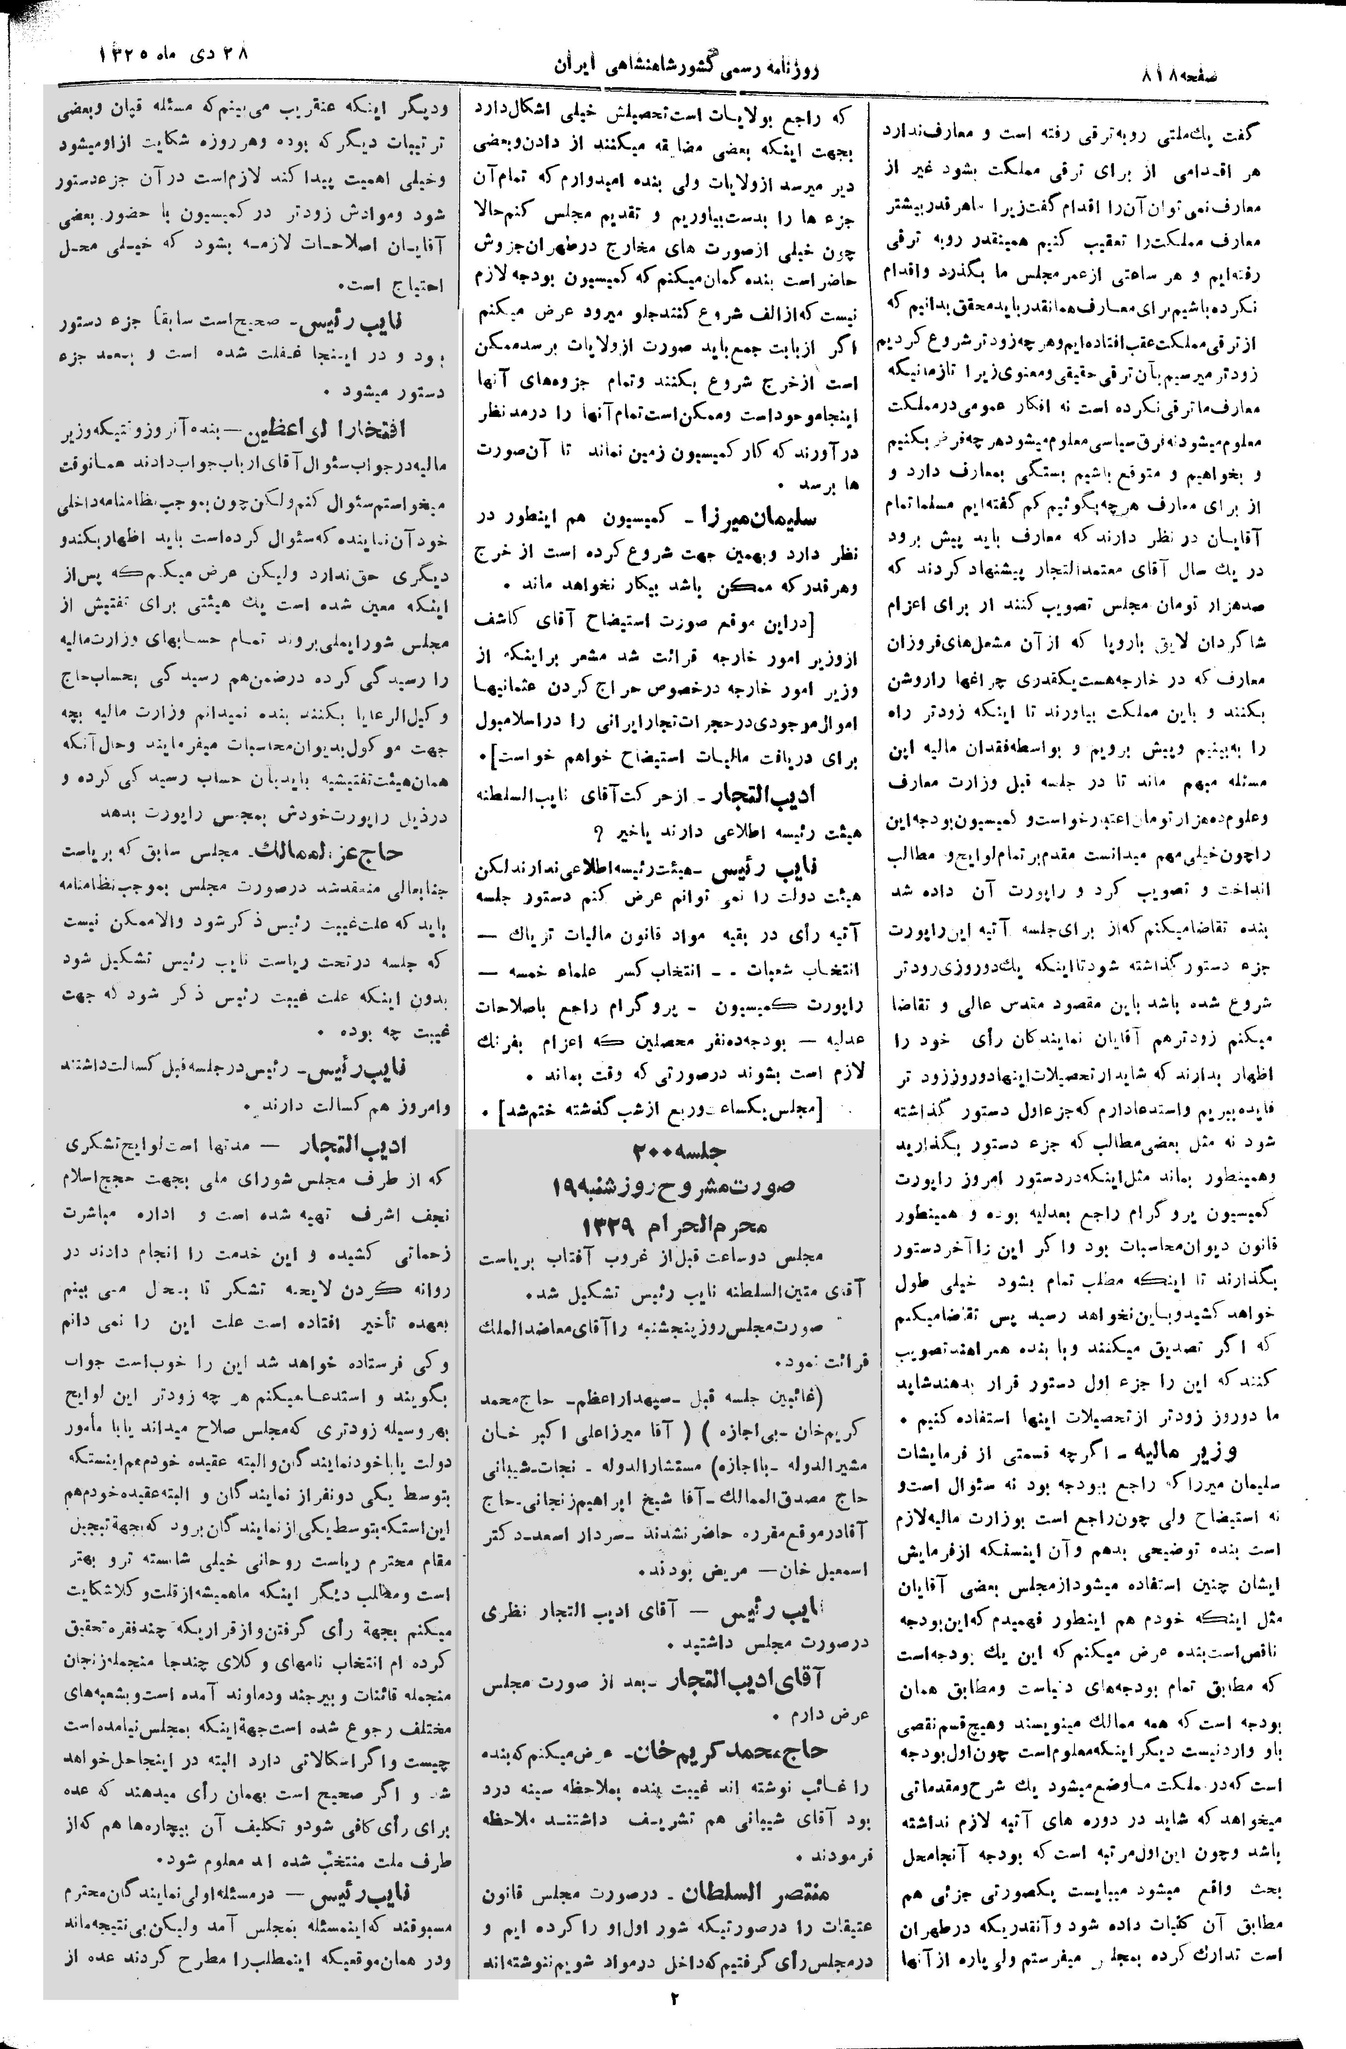 صفحه ۸۱۸
روزنامه رسمی کشور شاهنشاهی ایران
۲۸ دی ماه ۱۳۲۵
گفت یك ملتی رو به ترقی رفته است و معارف ندارد
هر اقدامی از برای ترقی مملکت بشود غیر از
معارف نمی توان آن را اقدام گفت زیرا ما هر قدر بیشتر
معارف مملکت را تعقیب کنیم همینقدر رو به ترقی
رفته ایم و هر ساعتی از عمر مجلس ما بگذرد و اقدام
نکرده باشیم برای معارف همانقدر باید محقق بدانیم که
از ترقی مملکت عقب افتاده ایم و هر چه زودتر شروع کردیم
زودتر میرسیم بآن ترقی حقیقی و معنوی زیرا تا زمانیکه
معارف ما ترقی نکرده است نه افکار عمومی در مملکت
معلوم میشود نه فرق سیاسی معلوم میشود هر چه فرض بکنیم
و بخواهیم و متوقع باشیم بستگی بمعارف دارد و
از برای معارف هر چه بگوئیم کم گفته ایم مسلما تمام
آقایان در نظر دارند که معارف باید پیش برود
در یك سال آقای معتمد التجار پیشنهاد کردند که
صد هزار تومان مجلس تصویب کنند از برای اعزام
شاگردان لایق باروپا که از آن مشعل های فروزان
معارف که در خارجه هست یکقدری چراغها را روشن
بکنند و باین مملکت بیاورند تا اینکه زودتر راه
را به بینیم و پیش برویم و بواسطه فقدان مالیه این
مسئله مبهم ماند تا در جلسه قبل وزارت معارف
و علوم ده هزار تومان اعتبار خواست و کمیسیون بودجه این
را چون خیلی مهم میدانست مقدم بر تمام لوایح و مطالب
انداخت و تصویب کرد و راپورت آن داده شد
بنده تقاضا میکنم که از برای جلسه آتیه این راپورت
جزء دستور گذاشته شود تا اینکه یك دو روزی زودتر
شروع شده باشد باین مقصود مقدس عالی و تقاضا
میکنم زودتر هم آقایان نمایندگان رأی خود را
اظهار بدارند که شاید از تحصیلات اینها دو روز زود تر
فایده ببریم و استدعا دارم که جزء اول دستور گذاشته
شود نه مثل بعضی مطالب که جزء دستور بگذارید
و همینطور بماند مثل اینکه در دستور امروز راپورت
کمیسیون پروگرام راجع بعدلیه بوده و همینطور
قانون دیوان محاسبات بود و اگر این را آخر دستور
بگذارند تا اینکه مطلب تمام بشود خیلی طول
خواهد کشید و باین نخواهد رسید پس تقاضا میکنم
که اگر تصدیق میکنند و با بنده همراهند تصویب
کنند که این را جزء اول دستور قرار بدهند شاید
ما دو روز زودتر از تحصیلات اینها استفاده کنیم .
وزیر مالیه ـ اگر چه قسمتی از فرمایشات
سلیمان میرزا که راجع ببودجه بود نه سئوال است و
نه استیضاح ولی چون راجع است بوزارت مالیه لازم
است بنده توضیحی بدهم و آن اینستکه از فرمایش
ایشان چنین استفاده میشود از مجلس بعضی آقایان
مثل اینکه خودم هم اینطور فهمیدم که این بودجه
ناقص است بنده عرض میکنم که این یك بودجه است
که مطابق تمام بودجه های دنیاست و مطابق همان
بودجه است که همه ممالك مینویسند و هیچ قسم نقصی
باو وارد نیست دیگر اینکه معلوم است چون اول بودجه
است که در مملکت ما وضع میشود یك شرح و مقدماتی
میخواهد که شاید در دوره های آتیه لازم نداشته
باشد و چون این اول مرتبه است که بودجه آنجا محل
بحث واقع میشود میبایست یکصورتی جزئی هم
مطابق آن کلیات داده شود و آنقدریکه در طهران
است تدارك کرده بمجلس میفرستم ولی پاره از آنها
که راجع بولایات است تحصیلش خیلی اشکال دارد
بجهت اینکه بعضی مضایقه میکنند از دادن و بعضی
دیر میرسد از ولایات ولی بنده امیدوارم که تمام آن
جزء ها را بدست بیاوریم و تقدیم مجلس کنم حالا
چون خیلی از صورت های مخارج در طهران جزوش
حاضر است بنده گمان میکنم که کمیسیون بودجه لازم
نیست که از الف شروع کنند جلو میرود عرض میکنم
اگر از بابت جمع باید صورت از ولایات برسد ممکن
است از خرج شروع بکنند و تمام جزوه های آنها
اینجا موجود است و ممکن است تمام آنها را در مد نظر
در آورند که کار کمیسیون زمین نماند تا آن صورت
ها برسد .
سلیمان میرزا ـ کمیسیون هم اینطور در
نظر دارد و بهمین جهت شروع کرده است از خرج
و هر قدر که ممکن باشد بیکار نخواهد ماند .
[در این موقع صورت استیضاح آقای کاشف
از وزیر امور خارجه قرائت شد مشعر بر اینکه از
وزیر امور خارجه در خصوص حراج کردن عثمانیها
اموال موجودی در حجرات تجار ایرانی را در اسلامبول
برای دریافت مالیات استیضاح خواهم خواست].
ادیب التجار ـ از حرکت آقای نایب السلطنه
هیئت رئیسه اطلاعی دارند یا خیر ؟
نایب رئیس ـ هیئت رئیسه اطلاعی ندارند لکن
هیئت دولت را نمی توانم عرض کنم دستور جلسه
آتیه رأی در بقیه مواد قانون مالیات تریاك —
انتخاب شعبات ـ ـ انتخاب کسر علماء خمسه —
راپورت کمیسیون ـ پروگرام راجع باصلاحات
عدلیه — بودجه ده نفر محصلین که اعزام بفرنك
لازم است بشوند در صورتی که وقت بماند .
[مجلس یکساعت و ربع از شب گذشته ختم شد] .
جلسه ۲۰۰
صورت مشروح روز شنبه ۱۹
محرم الحرام ۱۳۲۹
مجلس دو ساعت قبل از غروب آفتاب بریاست
آقای متین السلطنه نایب رئیس تشکیل شد.
صورت مجلس روز پنجشنبه را آقای معاضد الملك
قرائت نمود.
(غائبین جلسه قبل ـ سپهدار اعظم ـ حاج محمد
کریم خان ـ بی اجازه ) ( آقا میرزا علی اکبر خان
مشیر الدوله ـ با اجازه) مستشار الدوله ـ نجات ـ شیبانی
حاج مصدق الممالك ـ آقا شیخ ابراهیم زنجانی ـ حاج
آقا در موقع مقرره حاضر نشدند ـ سردار اسعد ـ دکتر
اسمعیل خان — مریض بودند.
نایب رئیس — آقای ادیب التجار نظری
در صورت مجلس داشتید .
آقای ادیب التجار ـ بعد از صورت مجلس
عرض دارم .
حاج محمد کریم خان ـ عرض میکنم که بنده
را غائب نوشته اند غیبت بنده بملاحظه سینه درد
بود آقای شیبانی هم تشریف داشتند ملاحظه
فرمودند .
منتصر السلطان ـ در صورت مجلس قانون
عتیقات را در صورتیکه شور اول او را کرده ایم و
در مجلس رأی گرفتیم که داخل در مواد شویم ننوشته اند
و دیگر اینکه عنقریب می بینم که مسئله قپان و بعضی
ترتیبات دیگر که بوده و هر روزه شکایت از او میشود
و خیلی اهمیت پیدا کند لازم است در آن جزء دستور
شود و موادش زودتر در کمیسیون با حضور بعضی
آقایان اصلاحات لازمه بشود که خیلی محل
احتیاج است.
نایب رئیس ـ صحیح است سابقاً جزء دستور
بود و در اینجا غفلت شده است و بعد جزء
دستور میشود .
افتخار الواعظین — بنده آنروز وقتیکه وزیر
مالیه در جواب سئوال آقای ارباب جواب دادند همانوقت
میخواستم سئوال کنم ولکن چون بموجب نظامنامه داخلی
خود آن نماینده که سئوال کرده است باید اظهار بکند و
دیگری حق ندارد ولیکن عرض میکنم که پس از
اینکه معین شده است یك هیئتی برای تفتیش از
مجلس شورایملی بروند تمام حسابهای وزارت مالیه
را رسیدگی کرده در ضمن هم رسیدگی بحساب حاج
وکیل الرعایا بکنند بنده نمیدانم وزارت مالیه بچه
جهت موکول بدیوان محاسبات میفرمایند و حال آنکه
همان هیئت تفتیشیه باید بآن حساب رسیدگی کرده و
در ذیل راپورت خودش بمجلس راپورت بدهد
حاج عز الممالك ـ مجلس سابق که بریاست
جنابعالی منعقد شد در صورت مجلس بموجب نظامنامه
باید که علت غیبت رئیس ذکر شود و الا ممکن نیست
که جلسه در تحت ریاست نایب رئیس تشکیل شود
بدون اینکه علت غیبت رئیس ذکر شود که جهت
غیبت چه بوده .
نایب رئیس ـ رئیس در جلسه قبل کسالت داشتند
و امروز هم کسالت دارند .
ادیب التجار — مدتها است لوایح تشکری
که از طرف مجلس شورای ملی بجهت حجج اسلام
نجف اشرف تهیه شده است و اداره مباشرت
زحماتی کشیده و این خدمت را انجام دادند در
روانه کردن لایحه تشکر تا بحال می بینم
بعهده تأخیر افتاده است علت این را نمی دانم
و کی فرستاده خواهد شد این را خوب است جواب
بگویند و استدعا میکنم هر چه زودتر این لوایح
بهر وسیله زودتری که مجلس صلاح میداند یا با مأمور
دولت یا با خود نمایندگان و البته عقیده خودم هم اینستکه
بتوسط یکی دو نفر از نمایندگان و البته عقیده خودم هم
این استکه بتوسط یکی از نمایندگان برود که بجهة تبجیل
مقام محترم ریاست روحانی خیلی شایسته تر و بهتر
است و مطالب دیگر اینکه ما همیشه از قلت وکلا شکایت
میکنم بجهة رأی گرفتن و از قراریکه چند فقره تحقیق
کرده ام انتخاب نامهای وکلای چند جا منجمله زنجان
منجمله قائنات و بیرجند و دماوند آمده است و بشعبه های
مختلف رجوع شده است جهة اینکه بمجلس نیامده است
چیست و اگر اشکالاتی دارد البته در اینجا حل خواهد
شد و اگر صحیح است بهمان رأی میدهند که عده
برای رأی کافی شود و تکلیف آن بیچاره ها هم که از
طرف ملت منتخب شده اند معلوم شود.
نایب رئیس — در مسئله اولی نمایندگان محترم
مسبوقند که اینمسئله بمجلس آمد ولیکن بی نتیجه ماند
و در همان موقعیکه اینمطلب را مطرح کردند عده از
۲